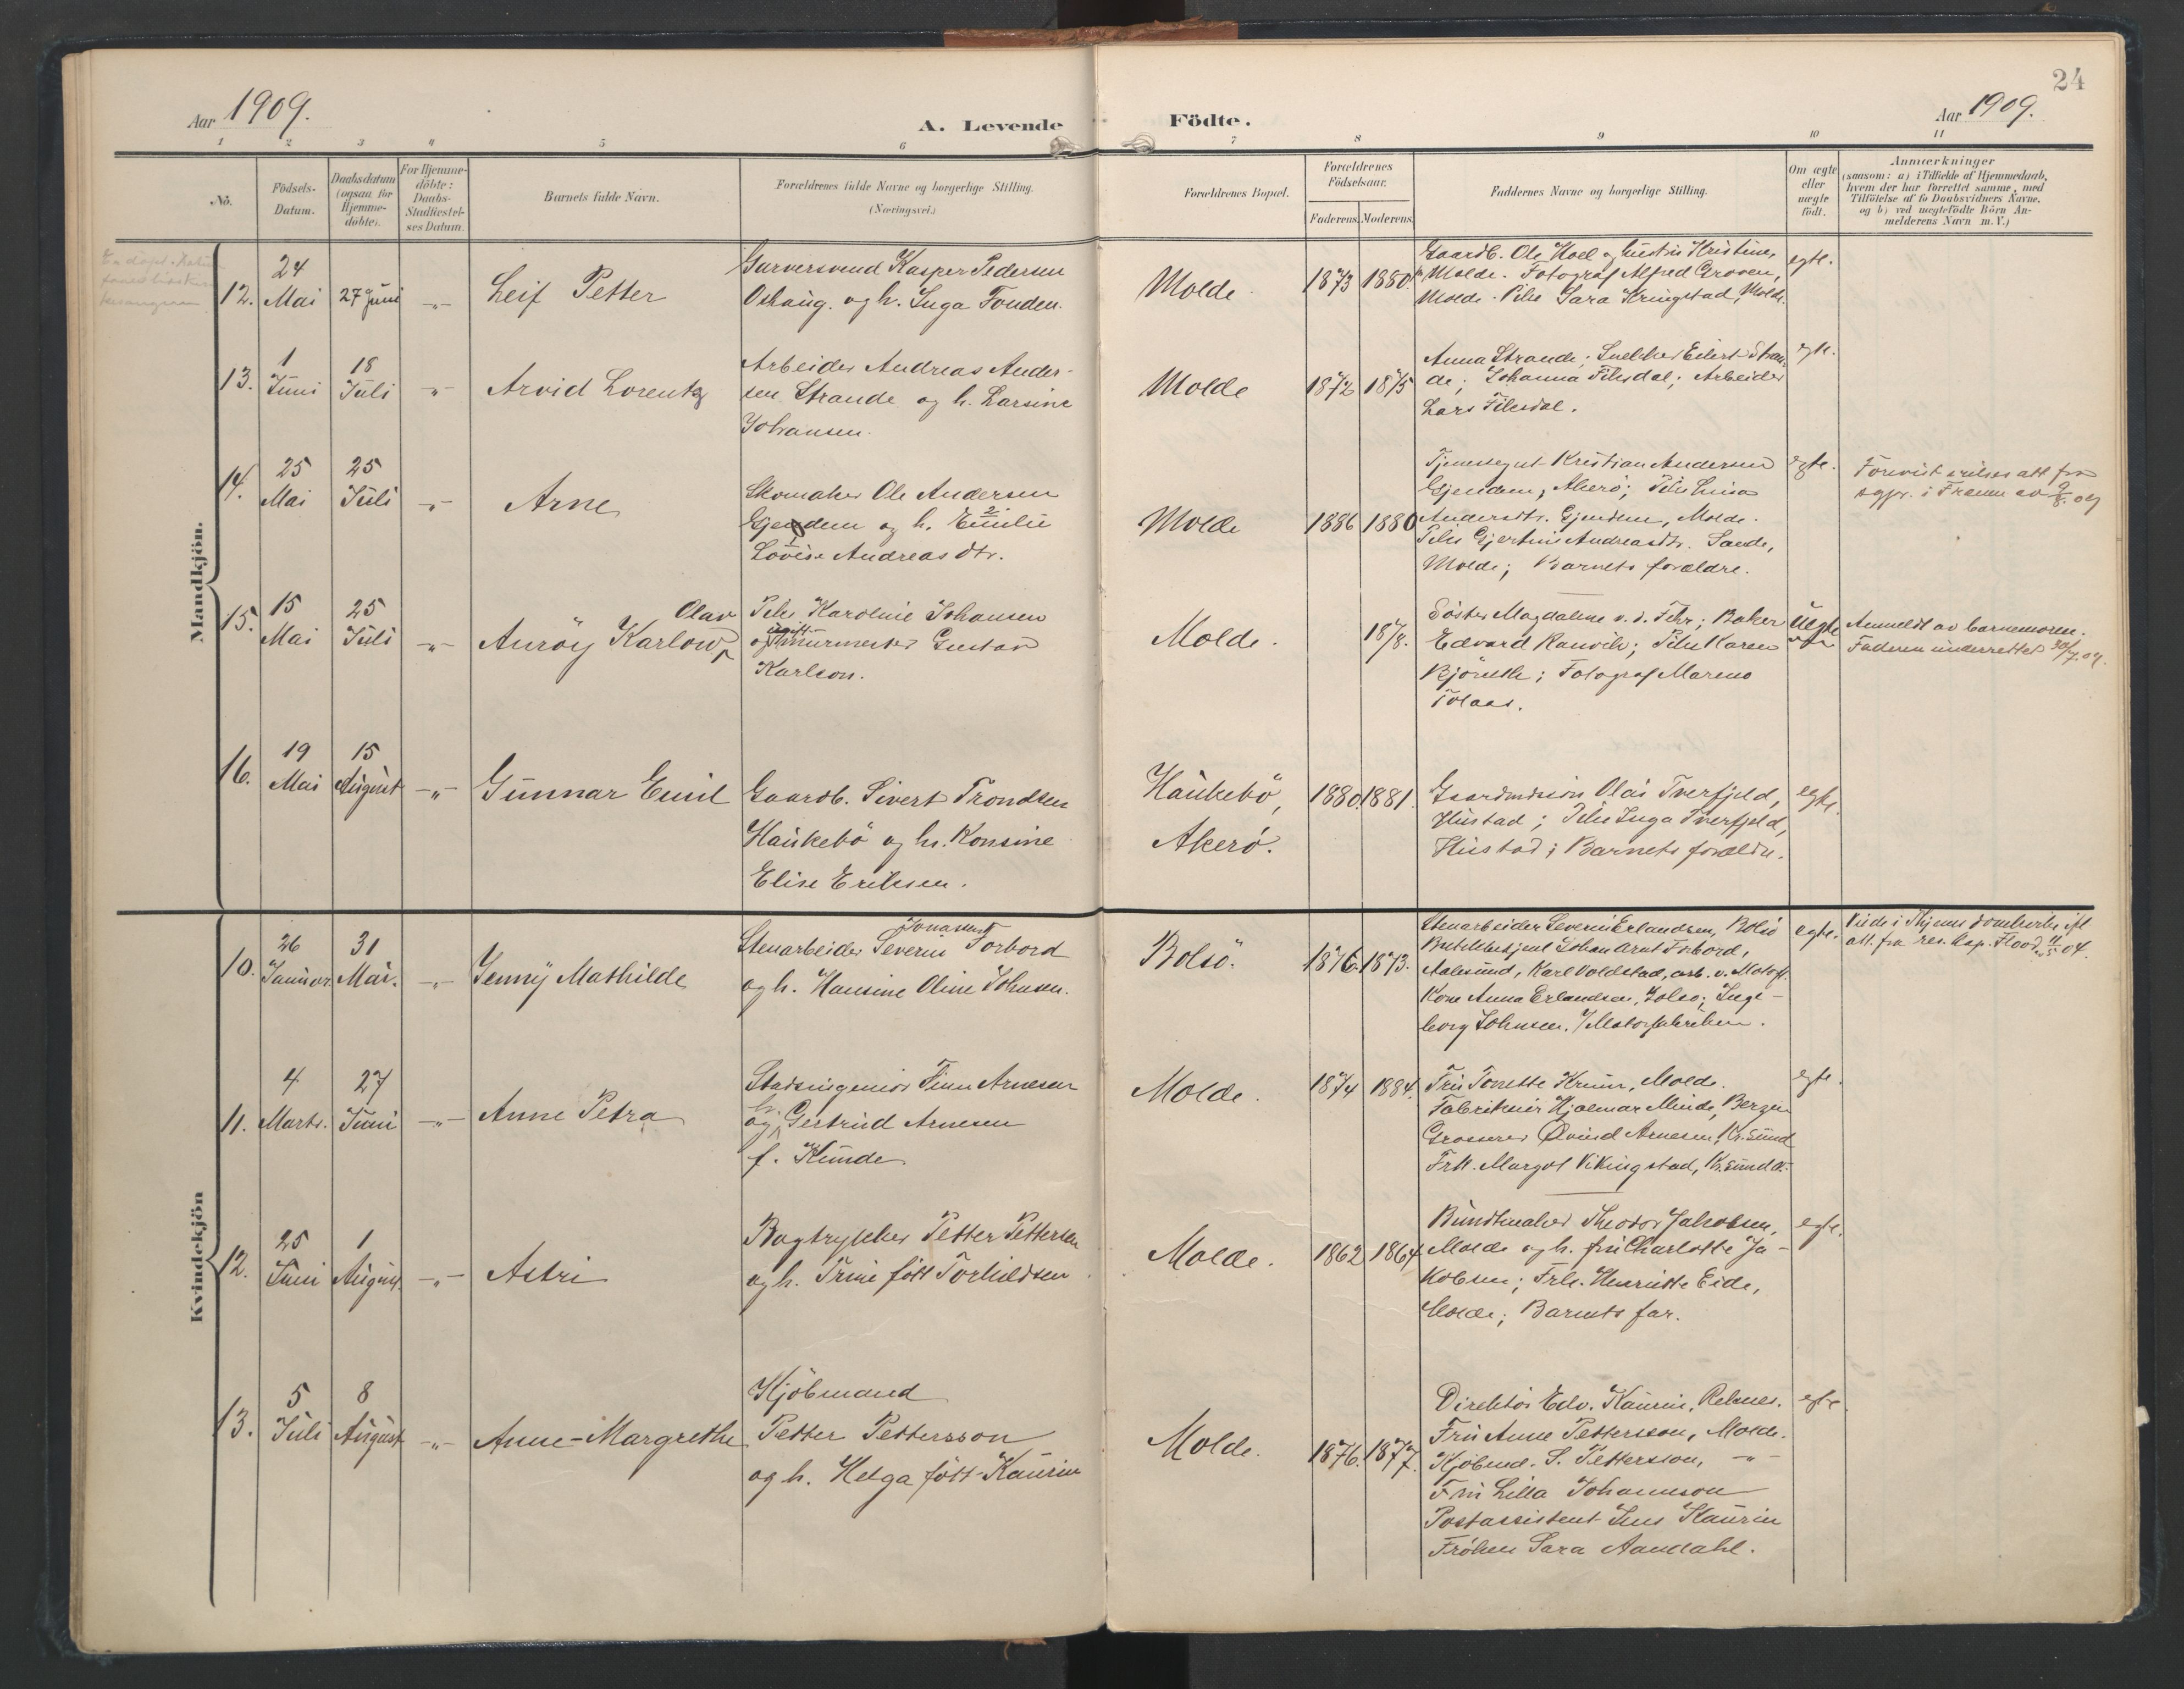 24
Aar 1909.
A. Levende Födte.
Aar 1909.
1 2 3 4 5 6 7 8 9 10 11
No.
Födsels-Datum.
Daabsdatum (ogsaa for Hjemme-döbte).
For Hjemme-döbte: Daabs-Stadfæstel-ses Datum.
Barnets fulde Navn.
Forældrenes fulde Navne og borgerlige Stilling.
(Næringsvei.)
Forældrenes Bopæl.
Forældrenes Födselsaar.
Faderens. Moderens.
Faddernes Navne og borgerlige Stilling.
Om ægte eller uægte födt.
Anmærkninger
(saasom: a) i Tilfælde af Hjemmedaab,
hvem der har forrettet samme, med
Tilföielse af to Daabsvidners Navne,
og b) ved uægtefödte Börn An-
melderens Navn m. V.)
Mandkjön.
12. 24 Mai 27 Juni -„- Leif Petter
Garversvend Kasper Pedersen
Oshaug. og h. Inga Fonden.
Molde. 1873 1880
Gaardb. Ole Hoel og hustru Kristine,
Molde. Fotograf Alfred Groven,
Molde. Pike Sara Kringstad, Molde.
egte.
13. 1 Juni 18 Juli -„- Arvid Lorentz
Arbeider Andreas Ander-
sen Strande og h. Larsine
Johansen.
Molde 1872 1875
Anna Strande; Snekker Eilert Stran-
de; Johanna Fiksdal; Arbeider
Lars Fiksdal.
egte.
14. 25 Mai 25 Juli -„- Arne
Skomaker Ole Andersen
Gjendem og h. Emilie
Lovise Andreasdtr.
Molde 1886 1880
Tjenestegut Kristian Andersen
Gjendem, Akerö; Pike Lina
Andersdtr. Gjendem, Molde.
Pike Gjertine Andreasdtr. Sande,
Molde; Barnets forældre.
egte.
Forevist vielsesatt fra
sgpr. i Fræna av
15. 15 Mai 25 Juli -„- Auröy Karlow Olav
Pike Karoline Johansen
og ugift murmester Gustav
Karlson.
Molde. 1878.
Söster Magdalene v. d. Fehr; Baker
Edvard Ranvik; Pike Karen
Bjöneth; Fotograf Mareno
Tolaas.
Uegte
Anmeldt av barnemoren.
Faderen underrettet 30/7. 09.
16. 19 Mai 15 August -„- Gunnar Emil
Gaardb. Sivert Trondsen
Haukebö og h. Konsine
Elise Eriksen.
Haukebö,
Akerö.
1880. 1881.
Gaardmdsön Olai Tverfjeld,
Hustad; Pike Inga Tverfjeld,
Hustad; Barnets forældre.
egte.
Kvindekjön
10. 26 Januar. 31 Mai. -„- Jenny Mathilde
Stenarbeider Severin Jonassen Forbord
og h. Hansine Oline Johnsen.
Bolsö. 1876. 1873.
Stenarbeider Severin Erlandsen, Bolsö
Johan Arnt Forbord,
Aalesund, Karl Voldstad, arb. v. Motorf.
Kone Anna Erlandsen, Bolsö; Inge-
borg Johnsen, Motorfabriken.
egte.
Viede i Thjems domkirke ifl
att. fra res. kap. Flood
11. 4 Marts. 27 Juni -„- Anne Petra
Stadsingeniör Finn Arnesen
og h. Gertrud Arnesen
f. Kunde
Molde. 1874 1884.
Fru Tonette Krum, Molde.
Fabrikeier Hjalmar Minde, Bergen
Grosserer Øvind Arnesen, Kr.sund
Frk. Margot Vikingstad, Kr.sund
egte.
12. 25 Juni 1 August. -„- Astri
Bogtrykker Petter Pettersen
og h. Trine född Torkildsen
Molde. 1862 1864
Bundtmaker Theodor Jakobsen,
Molde og h. fru Charlotte Ja-
kobsen; Frk. Henriette Eide,
Molde; Barnets far.
egte.
13. 5 Juli 8 August -„- Anne-Margrethe
Kjöbmand
Petter Pettersson
og h. Helga född Kaurin
Molde. 1876. 1877.
Direktör Edv. Kaurin, Reknes.
Fru Anne Pettersson, Molde.
Kjöbmd. S. Pettersson, -„-
Fru Lilla Johannson
Postassistent Jens Kaurin
Fröken Sara Aandahl.
egte